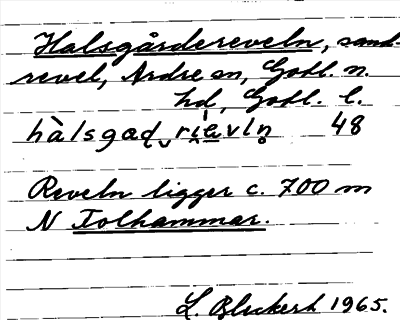 Halsgårdereveln, sand-
revel, Ardre sn, Gotl. n.
hd, Gotl. l.
hàlsgaḍ‿ri̯e̯vln̥ 48
Reveln ligger c. 700 m
N Tolhammar.
L. 1965.